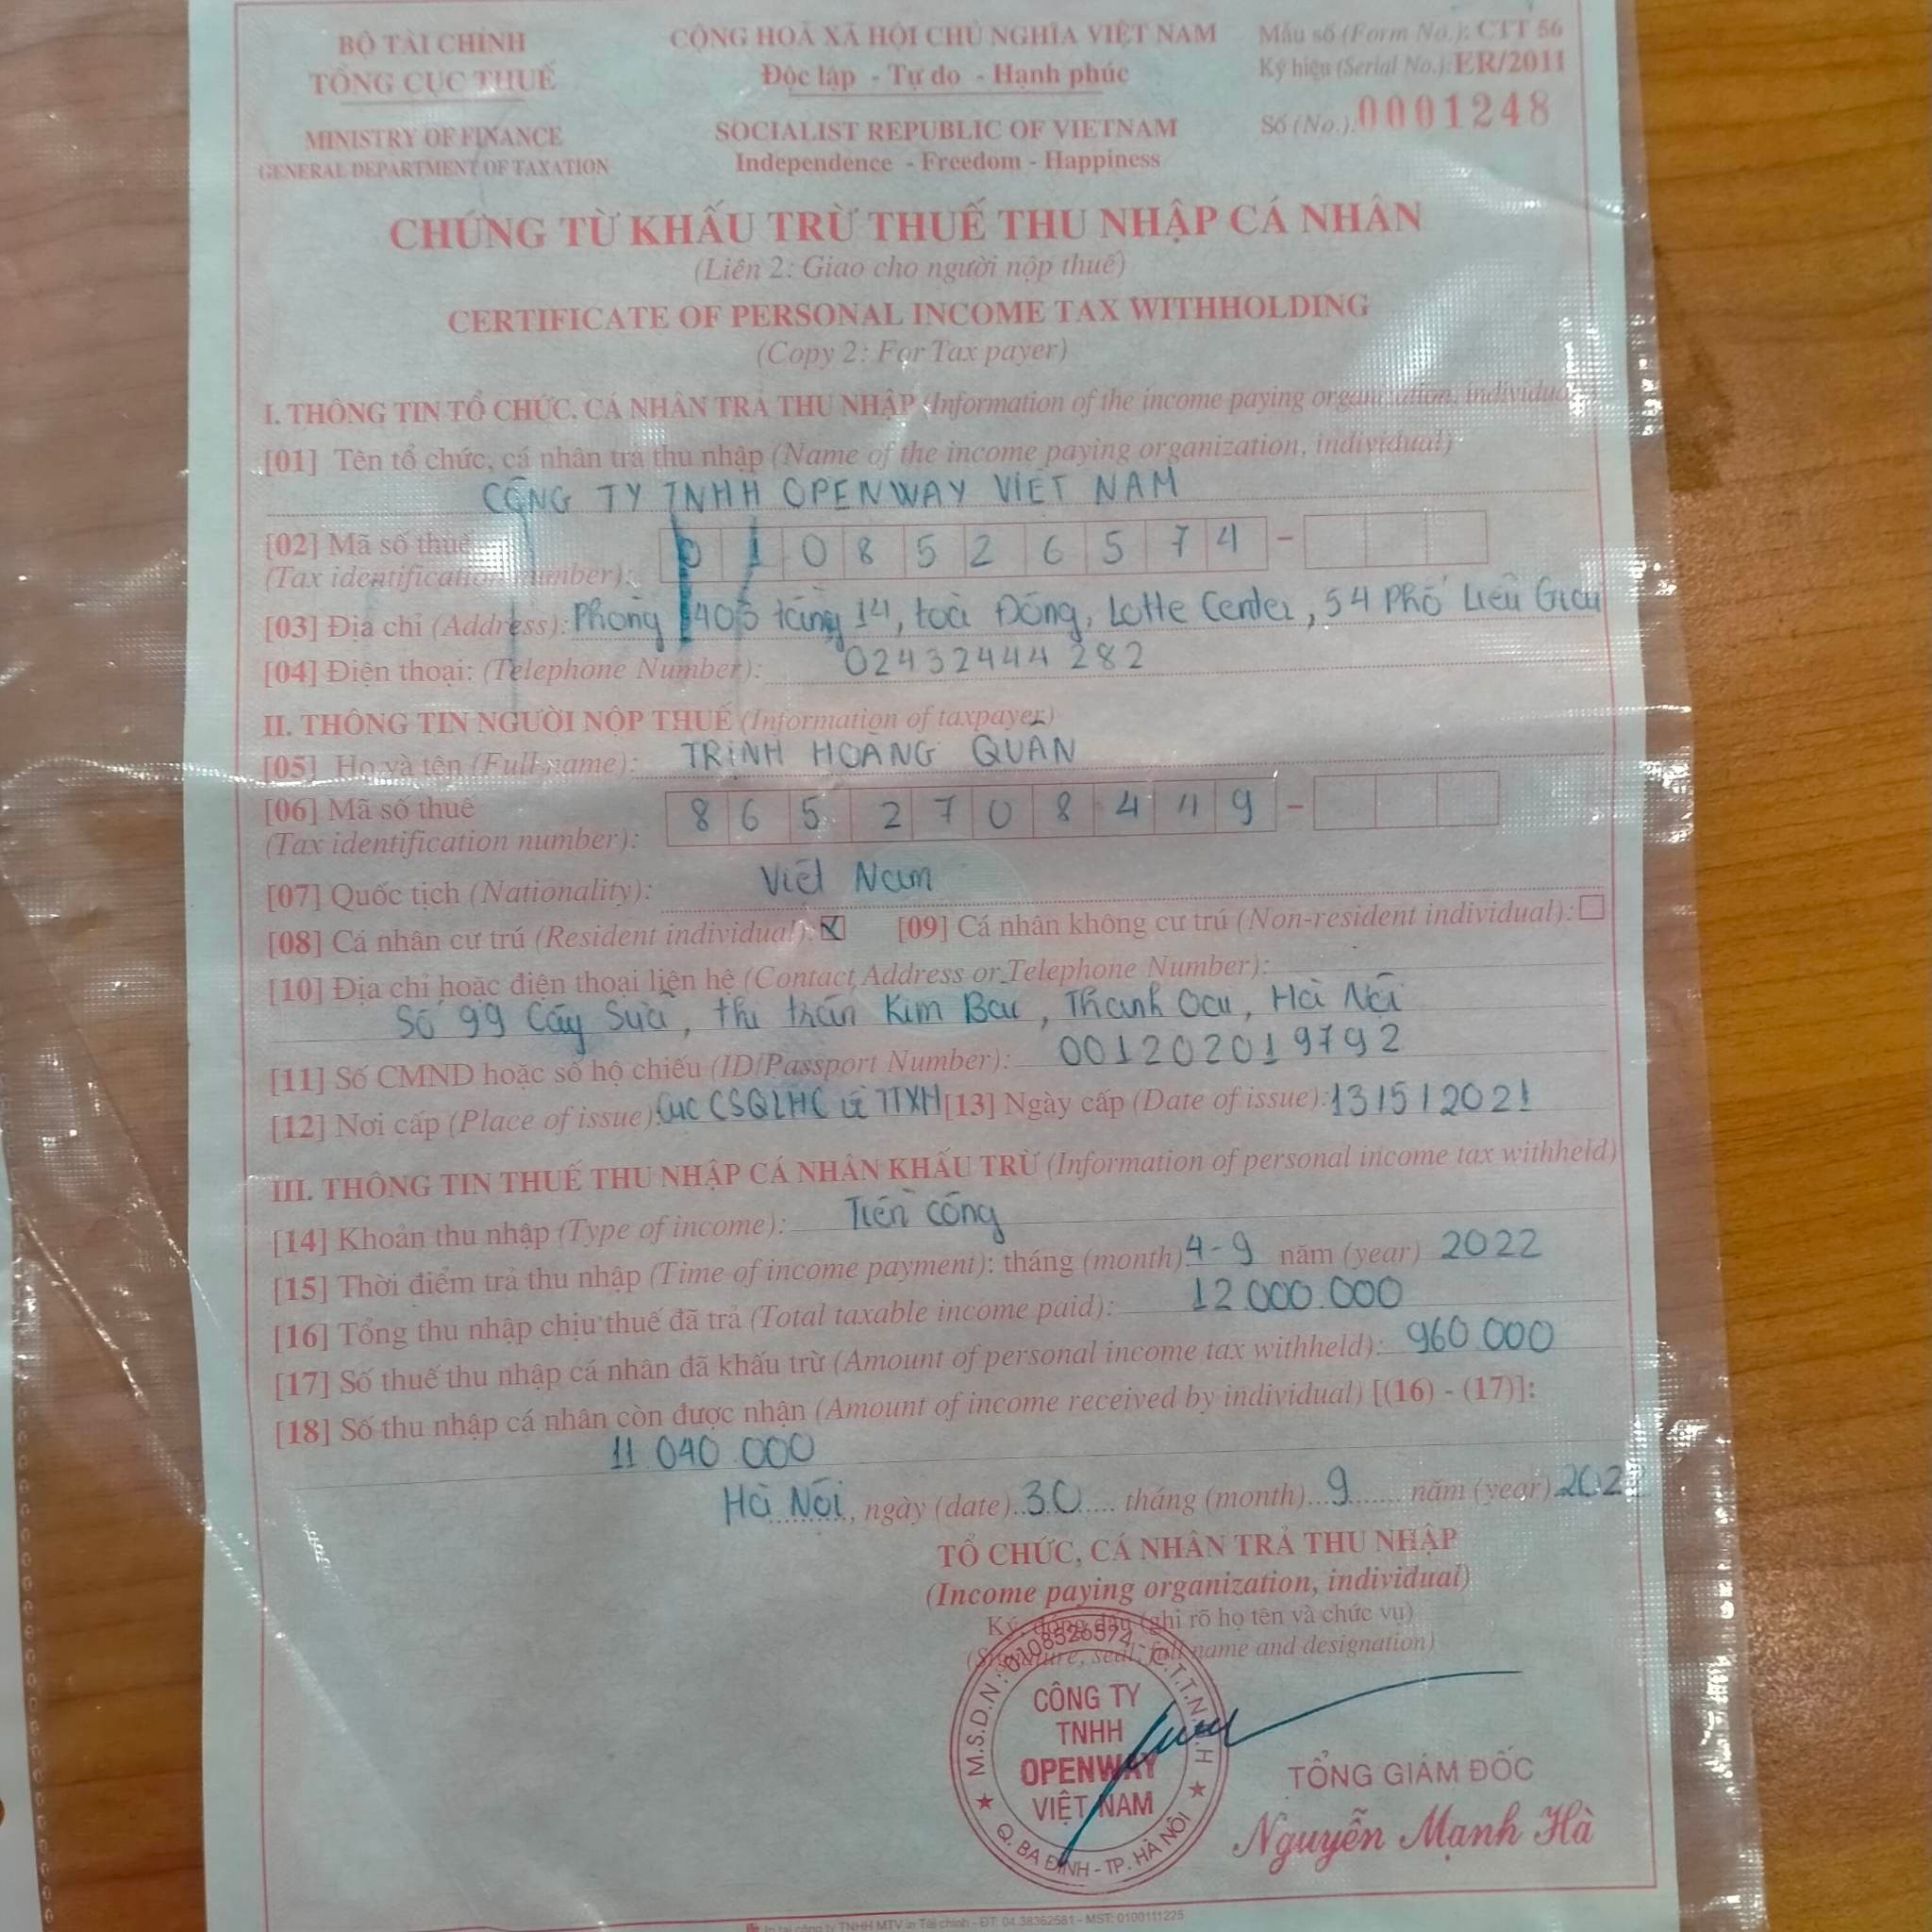 BỘ TÀI CHÍNH
TỔNG CỤC THUẾ
MINISTRY OF FINANCE
GENERAL DEPARTMENT OF TAXATION
CỘNG HOÀ XÃ HỘI CHỦ NGHĨA VIỆT NAM
Độc lập - Tự do - Hạnh phúc
SOCIALIST REPUBLIC OF VIETNAM
Independence - Freedom - Happiness
Mẫu số (Form No.): CTT 56
Ký hiệu (Serial No.): ER/2011
Số (No.): 0001248
CHỨNG TỪ KHẤU TRỪ THUẾ THU NHẬP CÁ NHÂN
(Liên 2: Giao cho người nộp thuế)
CERTIFICATE OF PERSONAL INCOME TAX WITHHOLDING
(Copy 2: For Tax payer)
I. THÔNG TIN TỔ CHỨC, CÁ NHÂN TRẢ THU NHẬP (Information of the income paying organization, individual)
[01] Tên tổ chức, cá nhân trả thu nhập (Name of the income paying organization, individual)
CÔNG TY TNHH OPENWAY VIỆT NAM
[02] Mã số thuế
(Tax identification number): 0 1 0 8 5 2 6 5 7 4 -
[03] Địa chỉ (Address): Phòng 1405 tầng 14, toà Đông, Lotte Center, 54 Phố Liễu Giai
[04] Điện thoại: (Telephone Number): 02432444282
II. THÔNG TIN NGƯỜI NỘP THUẾ (Information of taxpayer)
[05] Họ và tên (Full name): TRỊNH HOÀNG QUÂN
[06] Mã số thuế
(Tax identification number): 8 6 5 2 7 0 8 4 4 9 -
[07] Quốc tịch (Nationality): Việt Nam
[08] Cá nhân cư trú (Resident individual): [09] Cá nhân không cư trú (Non-resident individual):
[10] Địa chỉ hoặc điện thoại liên hệ (Contact Address or Telephone Number):
Số 99 Cây Sữa, thị trấn Kim Bài, Thanh Oai, Hà Nội
[11] Số CMND hoặc số hộ chiếu (ID/Passport Number): 001202019792
[12] Nơi cấp (Place of issue): Cục CSQLHC về TTXH [13] Ngày cấp (Date of issue): 13/5/2021
III. THÔNG TIN THUẾ THU NHẬP CÁ NHÂN KHẤU TRỪ (Information of personal income tax withheld)
[14] Khoản thu nhập (Type of income): Tiền công
[15] Thời điểm trả thu nhập (Time of income payment): tháng (month) 4-9 năm (year) 2022
[16] Tổng thu nhập chịu thuế đã trả (Total taxable income paid): 12.000.000
[17] Số thuế thu nhập cá nhân đã khấu trừ (Amount of personal income tax withheld): 960.000
[18] Số thu nhập cá nhân còn được nhận (Amount of income received by individual) [(16) - (17)]:
11.040.000
Hà Nội, ngày (date) 30 tháng (month) 9 năm (year) 2022
TỔ CHỨC, CÁ NHÂN TRẢ THU NHẬP
(Income paying organization, individual)
Ký, đóng dấu (ghi rõ họ tên và chức vụ)
(Signature, seal, full name and designation)
M.S.D.N: 0108526574 - C.T.T.N.H.H
CÔNG TY
TNHH
OPENWAY
VIỆT NAM
Q. BA ĐÌNH - TP. HÀ NỘI
TỔNG GIÁM ĐỐC
Nguyễn Mạnh Hà
In tại công ty TNHH MTV in Tài chính - ĐT: 04.38362581 - MST: 0100111225